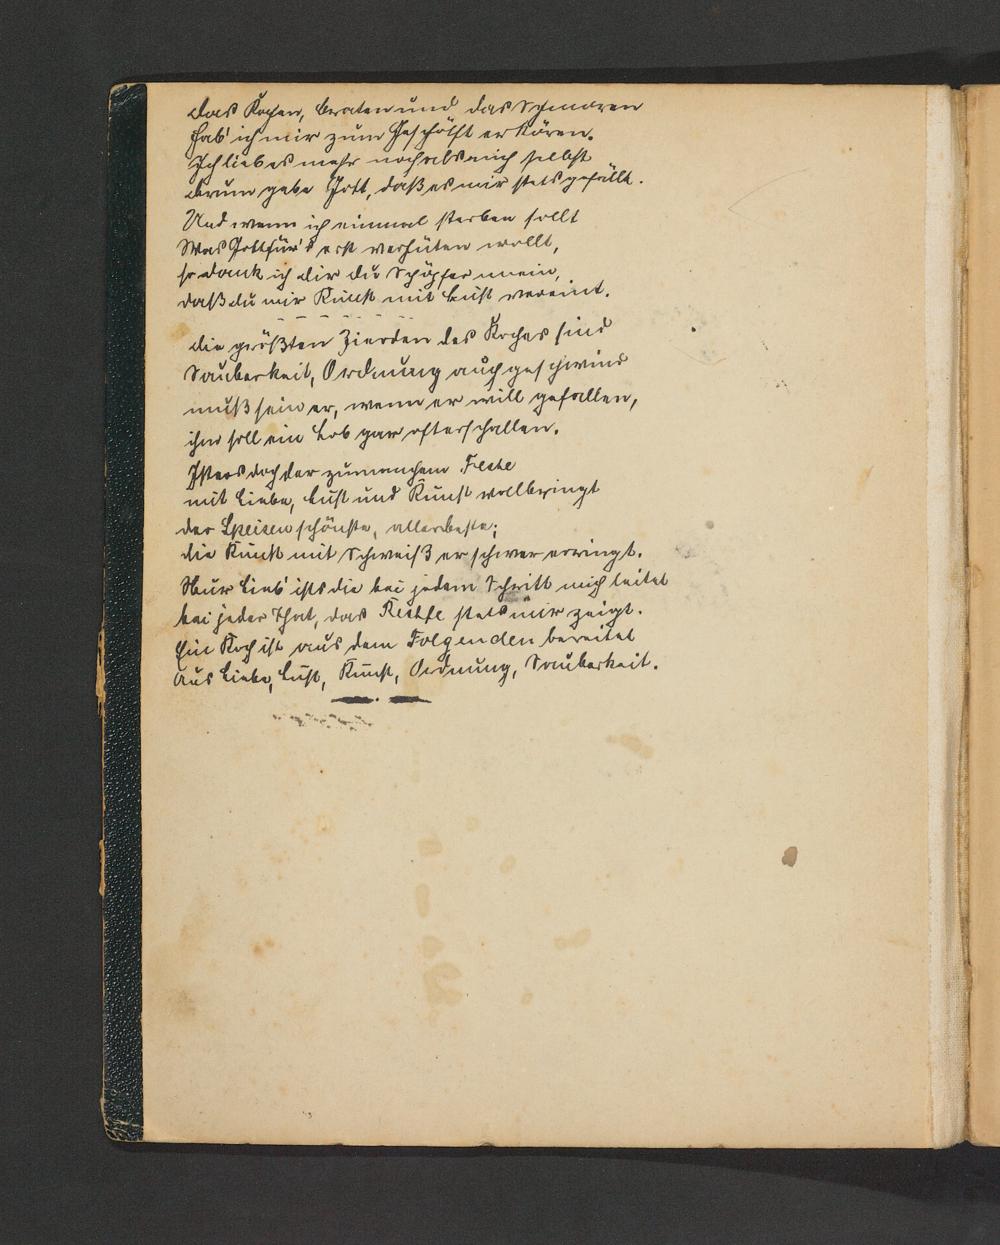 das Kochen, braten und das Schmoren
Hab' ich mir zum Geschäft erkoren.
Ich lieb es mehr noch als mich selbst
darum gebe Gott, daß es mir stets gefällt.
Und wenn ich einmal sterben sollt
Was Gott für's erst verhüten wollt,
so dank ich dir du Schöpfer mein,
daß du mir Kunst mit Lust vereint.
die größten Zierden des Koches sind
Sauberkeit, Ordnung auch geschwind
muß sein er, wenn er will gefallen,
ihm soll ein Lob gar oft erschallen.
Ist er's doch der zu manchem Feste
mit Liebe, Lust und Kunst vollbringt
der Speisen schönste, allerbeste;
die Kunst mit Schweiß er schwer erringt.
Nur Lieb' ists die bei jedem Schritt mich leitet
bei jeder That, das Rechte stets mir zeigt.
Ein Koch ist aus dem Folgenden bereitet
Aus Liebe, Lust, Kunst, Ordnung, Sauberkeit.